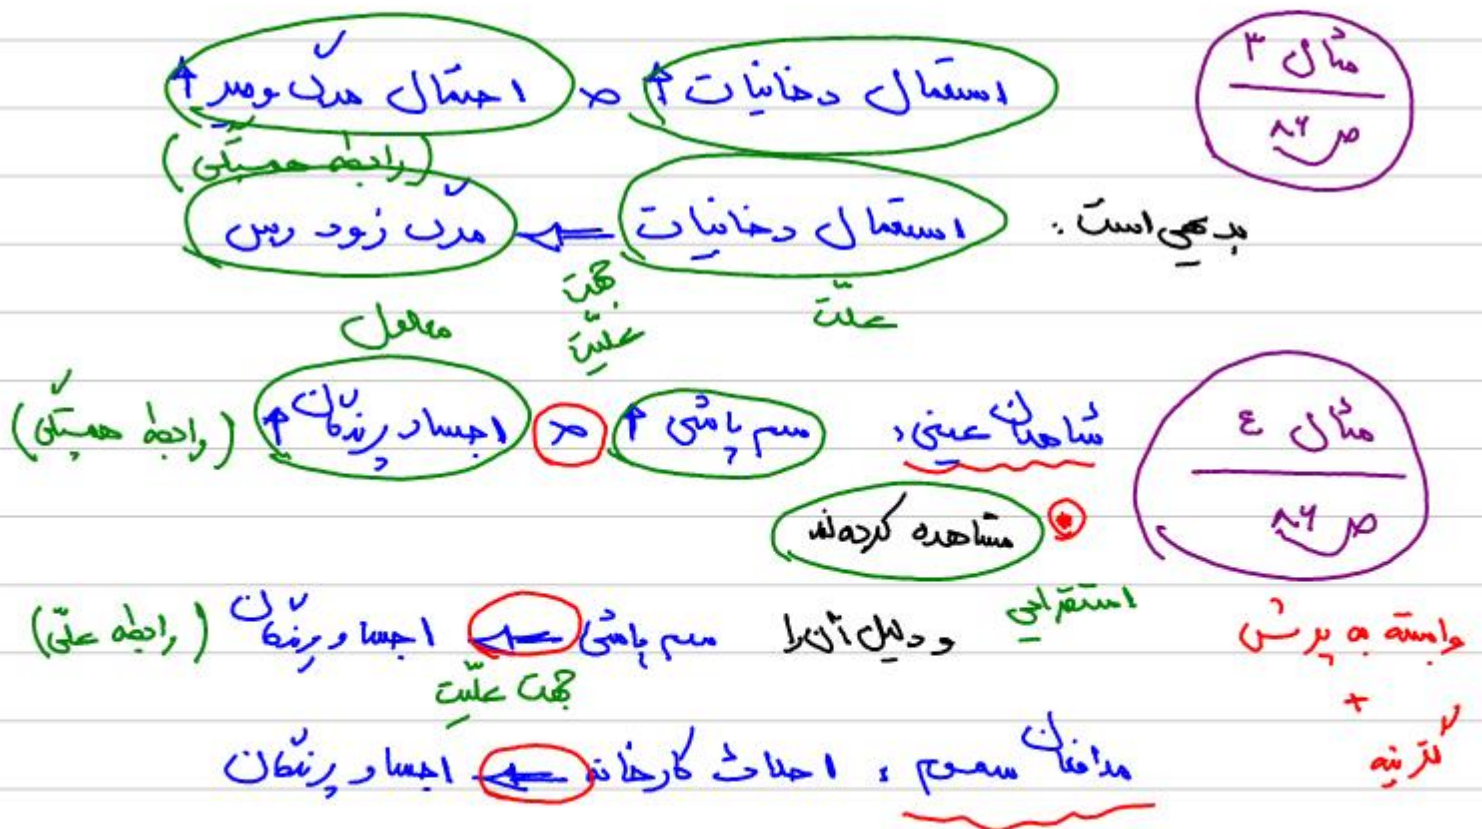 مثال ۳
ص ۸۶
استعمال دخانیات ↑ ∝ احتمال مرگ و میر ↑
(رابطه همبستگی)
بدیهی است: استعمال دخانیات ⇐ مرگ زودرس
علت جهت علیّت
معلول
مثال ٤
ص ۸۶
شاهدان عینی: سم پاشی ↑ ∝ اجساد پرندگان ↑ (رابطه همبستگی)
مشاهده کرده‌اند
استقرایی
و دلیل آن را سم پاشی ⇐ اجساد پرندگان (رابطه علّی)
جهت علیّت
وابسته به پرسش
+
گزینه
مدافعان سموم: احداث کارخانه ⇐ اجساد پرندگان